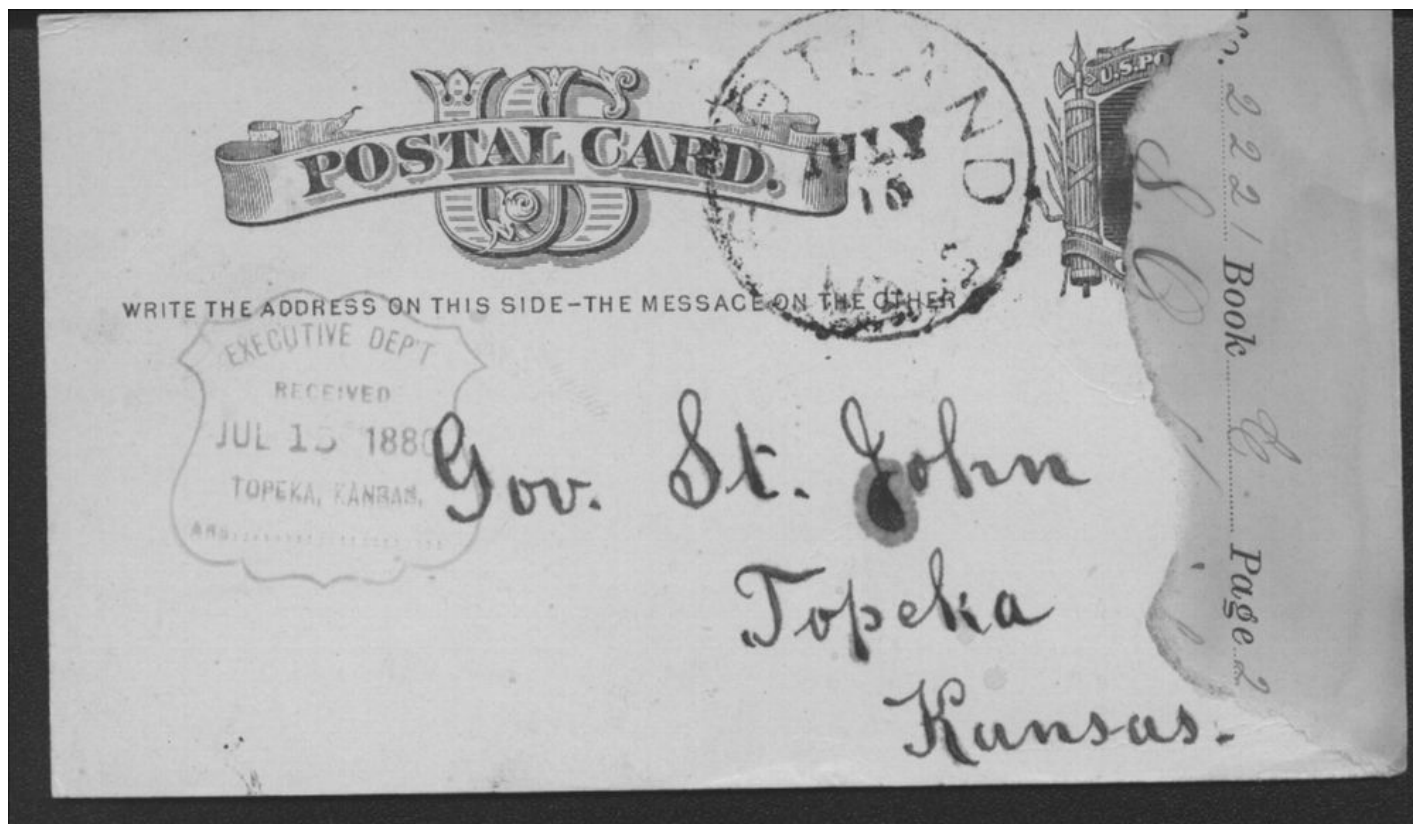 US
POSTAL CARD.
JULY
U.S.PO
WRITE THE ADDRESS ON THIS SIDE-THE MESSAGE ON THE OTHER
EXECUTIVE DEP'T
RECEIVED
JUL 15 1880
TOPEKA, KANSAS,
ANS
Gov. St. John
Topeka
Kansas.
2221 Book C. Page 2